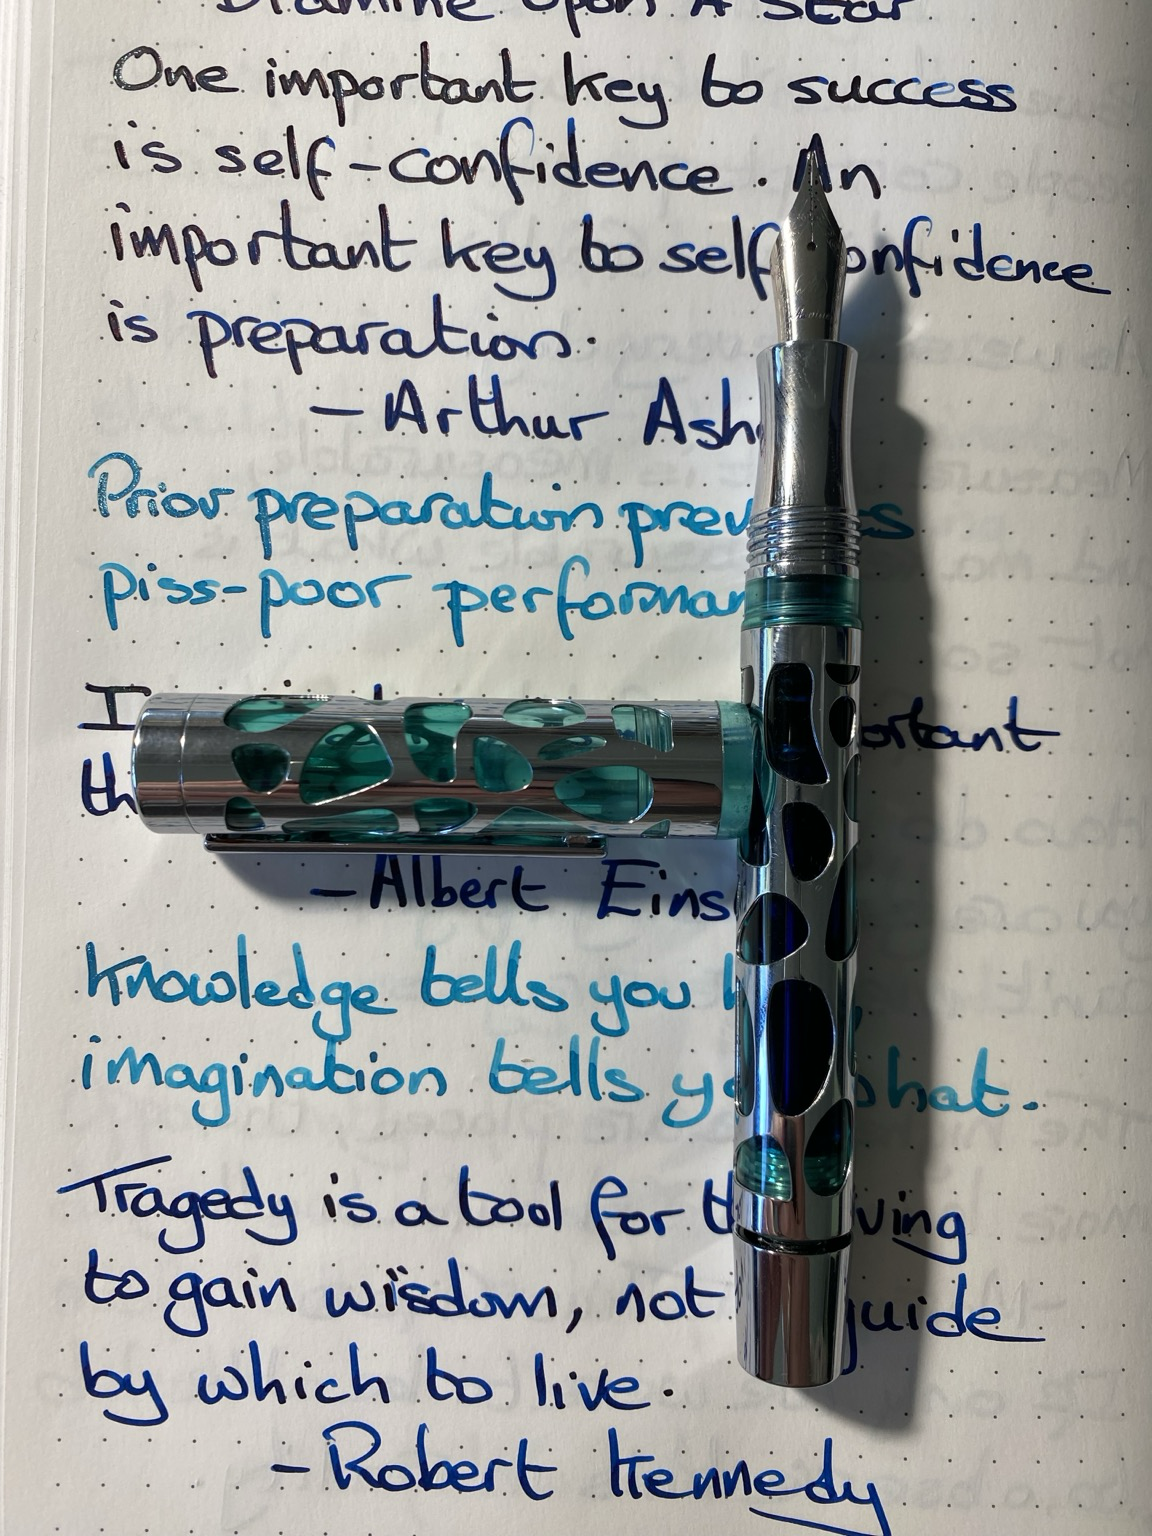 Diamine Upon A Star
One important key to success
is self-confidence. An
important key to self confidence
is preparation.
- Arthur Ash
Prior preparation prev es
piss-poor performan
I ortant
th
- Albert Eins
Knowledge tells you h
imagination tells yo what.
Tragedy is a tool for th iving
to gain wisdom, not guide
by which to live.
- Robert Kennedy